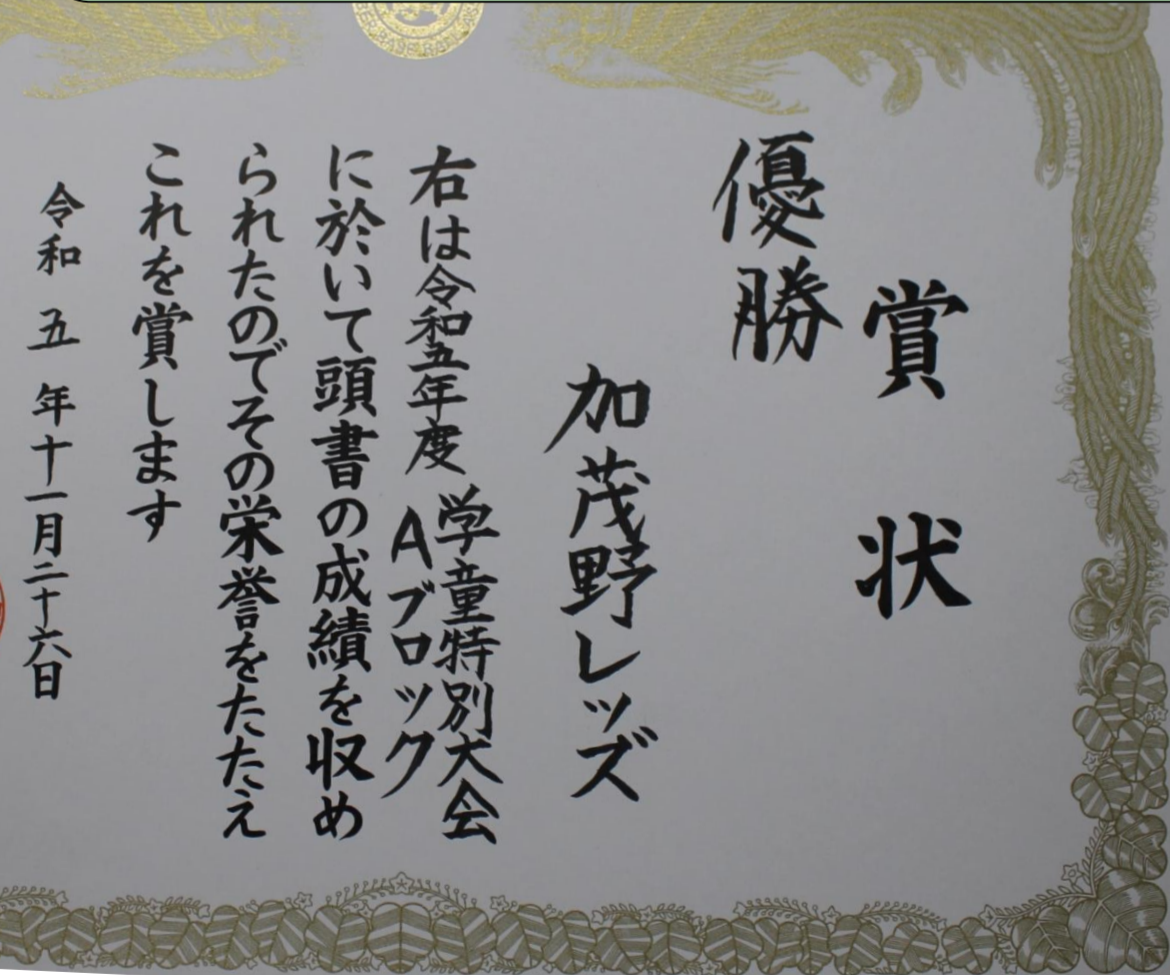 賞状
優勝
加茂野レッズ
右は令和五年度 学童特別大会
Aブロック
に於いて頭書の成績を収め
られたのでその栄誉をたたえ
これを賞します
令和 五 年十一月二十六日